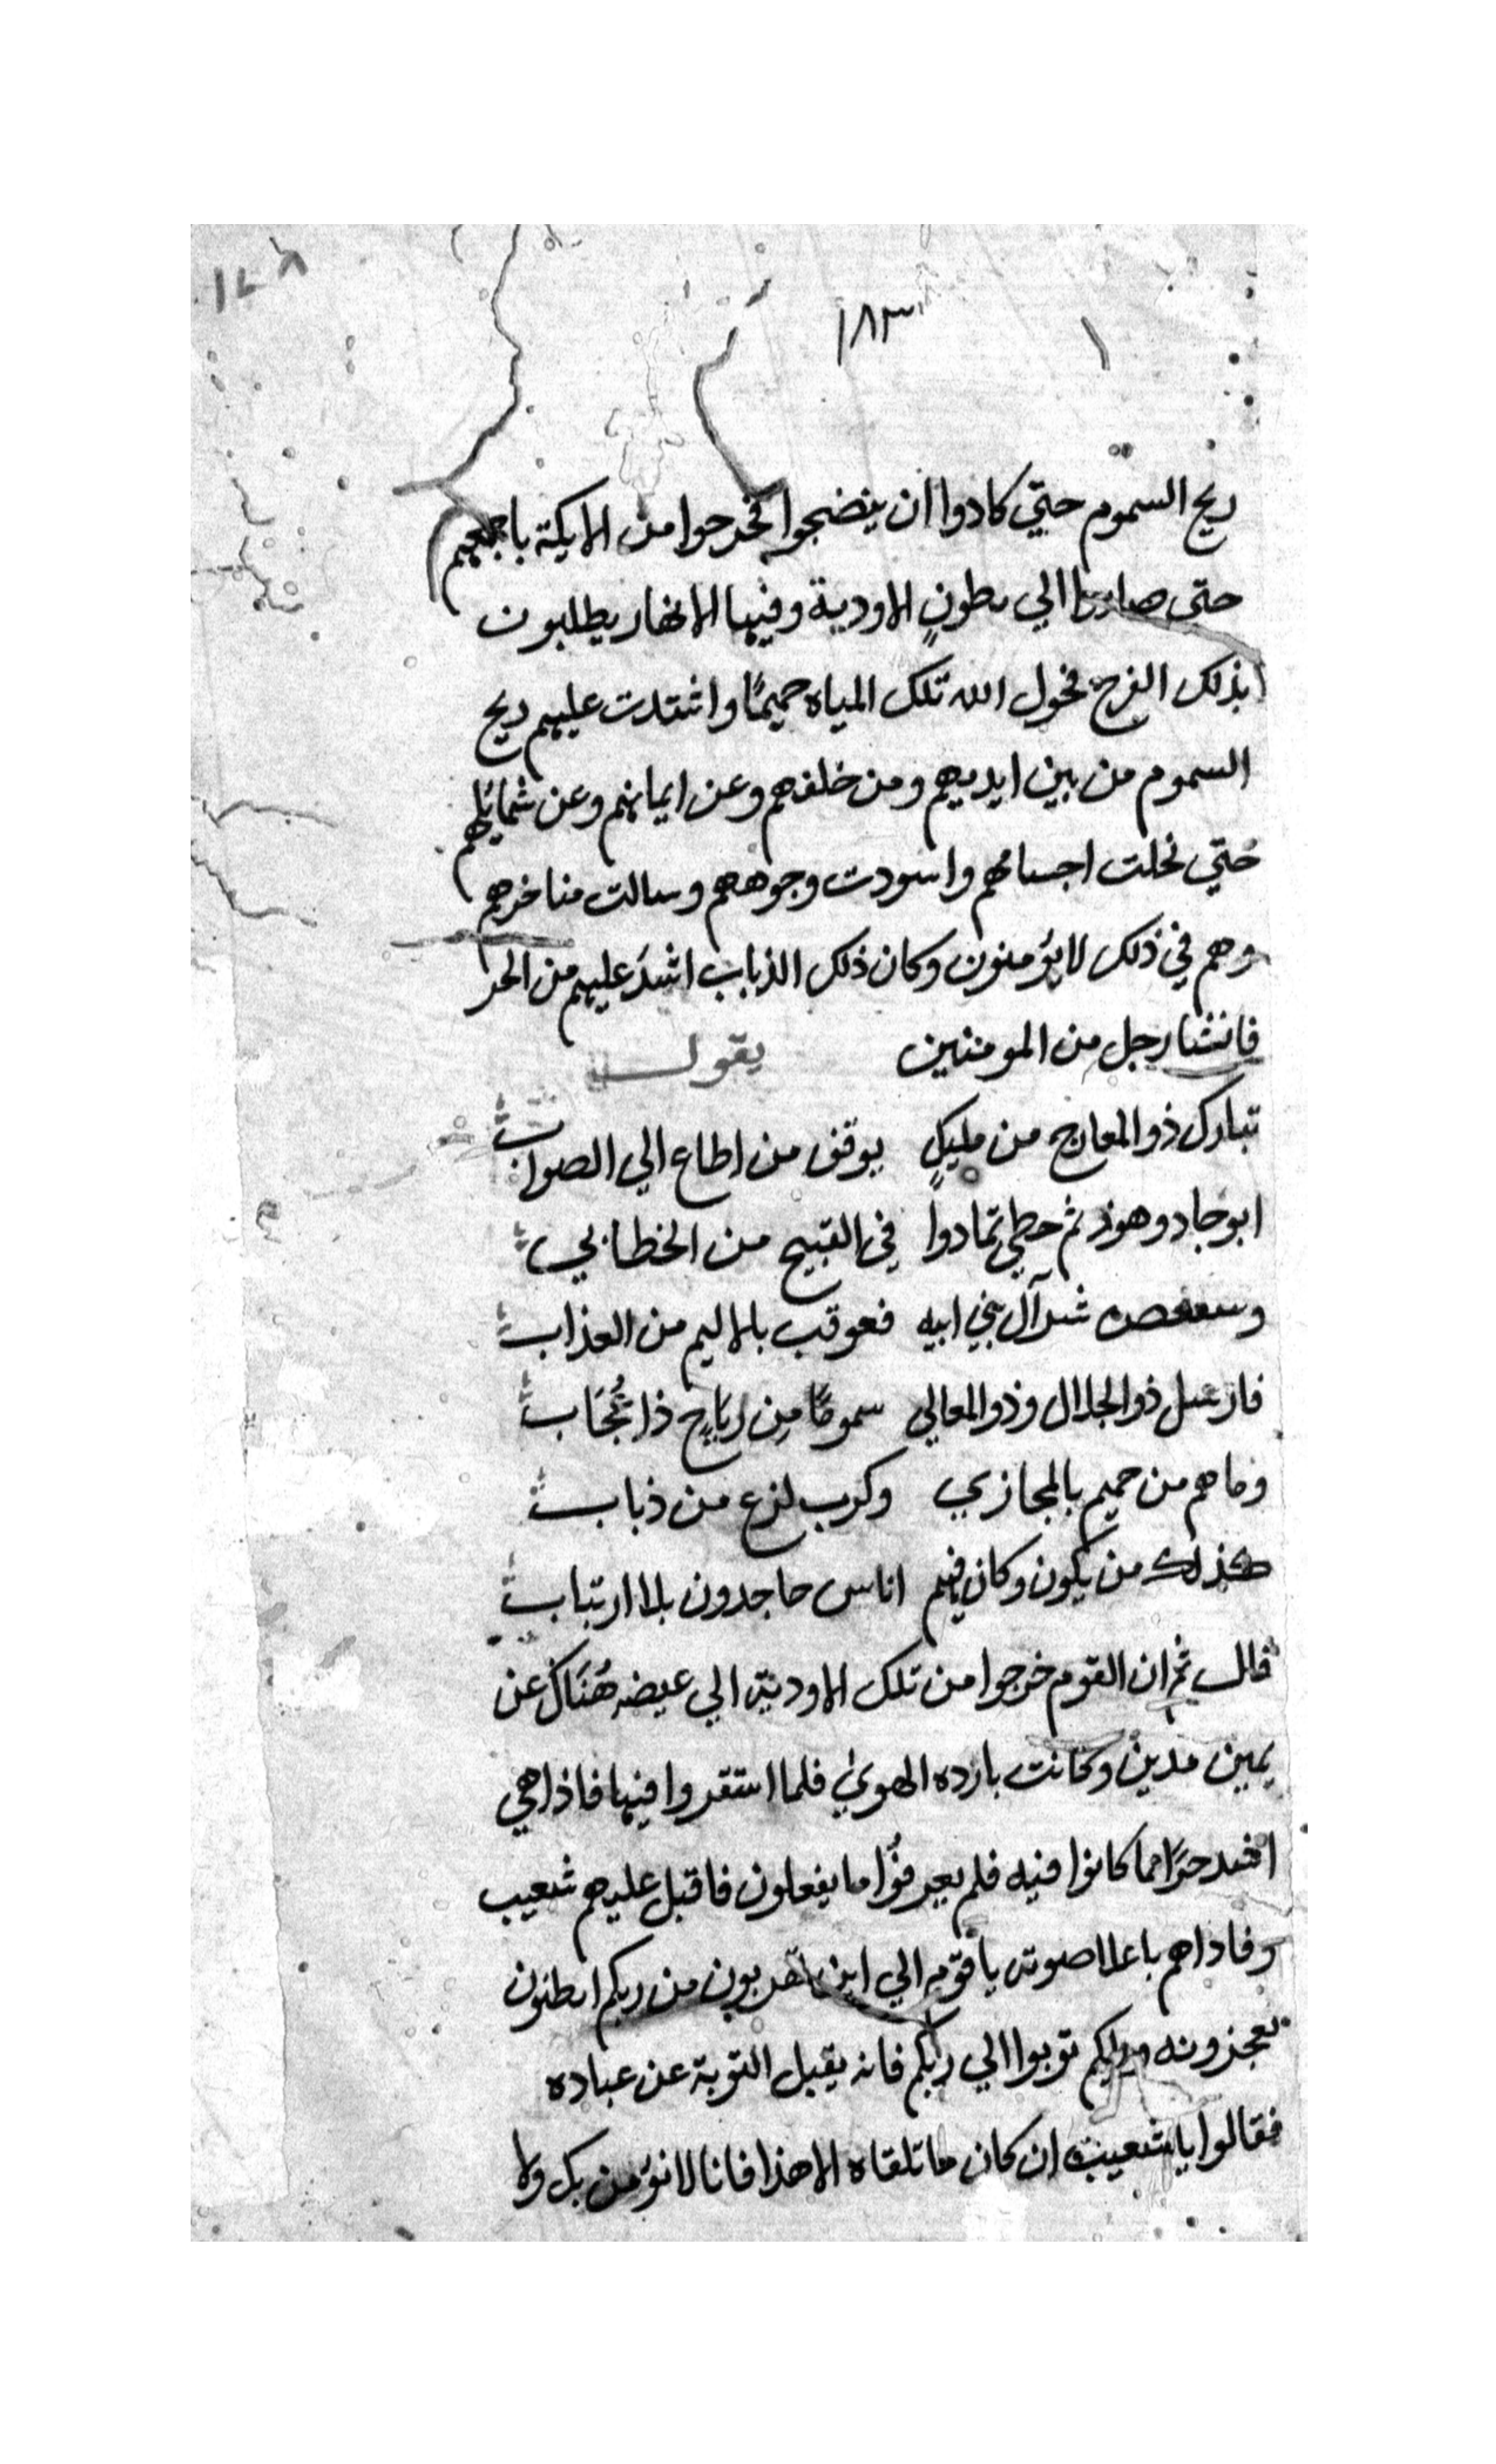 ١٢٨
١٨٣
ريح السموم حتي كادوا ان ينضجوا فخرجوا من الايكة باجمعهم
حتى صاروا الي بطونٍ الاودية وفيها الانهار يطلبون
بذلك الفرج فحول الله تلك المياه حميمًا واشتدت عليهم ريح
السموم من بين ايديهم ومن خلفهم وعن ايمانهم وعن شمايلهم
حتي نحلت اجسامهم واسودت وجوههم وسالت مناخرهم
وهم في ذلك لا يؤمنون وكان ذلك الذباب اشدّ عليهم من الحر
فانشا رجل من المومنين يقول
تبارك ذو المعارج من مليكٍ يوفق من اطاع الي الصواب
ابوجاد وهوز ثم حطي تمادوا في القبيح من الخطابي
وسعفص آل بني ابيه فعوقب بالاليم من العذاب
فارسل ذو الجلال وذو المعالي سمومًا مِن رياحٍ ذا عُجَاب
وما هم من حميم بالمجازي وكرب لزع من ذباب
كذلك من يكون وكان فيهم اناس جاحدون بلا ارتياب
قال ثم ان القوم خرجوا من تلك الاودية الي غيضه هُنَاك عن
يمين مدين وكانت بارده الهوي فلما استقروا فيها فاذا هي
اشد حرًا مما كانوا فيه فلم يعرفوا ما يفعلون فاقبل عليهم شعيب
وناداهم باعلا صوته يا قوم الي اين تهربون من ربكم اتظنون
تعجزونه توبوا الي ربكم فانه يقبل التوبة عن عباده
فقالوا يا شعيب ان كان ما تلقاه الا هذا فانا لا نؤمن بك ولا